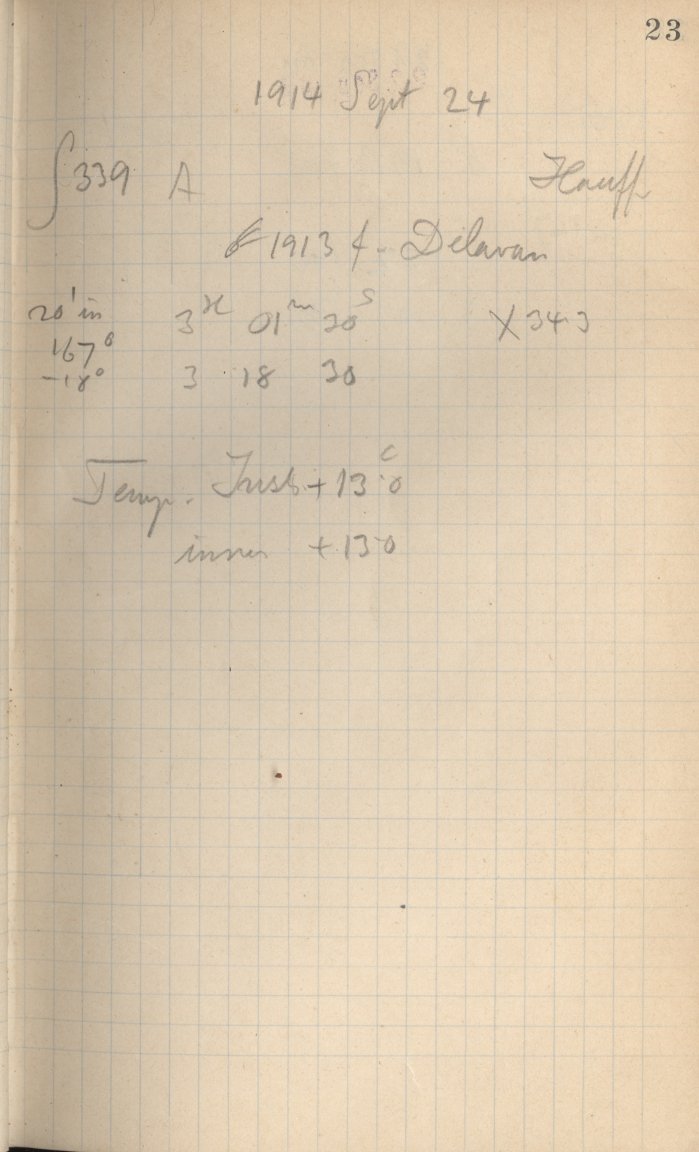 23
1914 Sept 24
∫339 A Hauff
1913 f. Delavan
20' in 3ʰ 01ᵐ 20ˢ X343
167°
-18° 3 18 30
Temp. Inst. +13ᶜ.0
inner +13.0